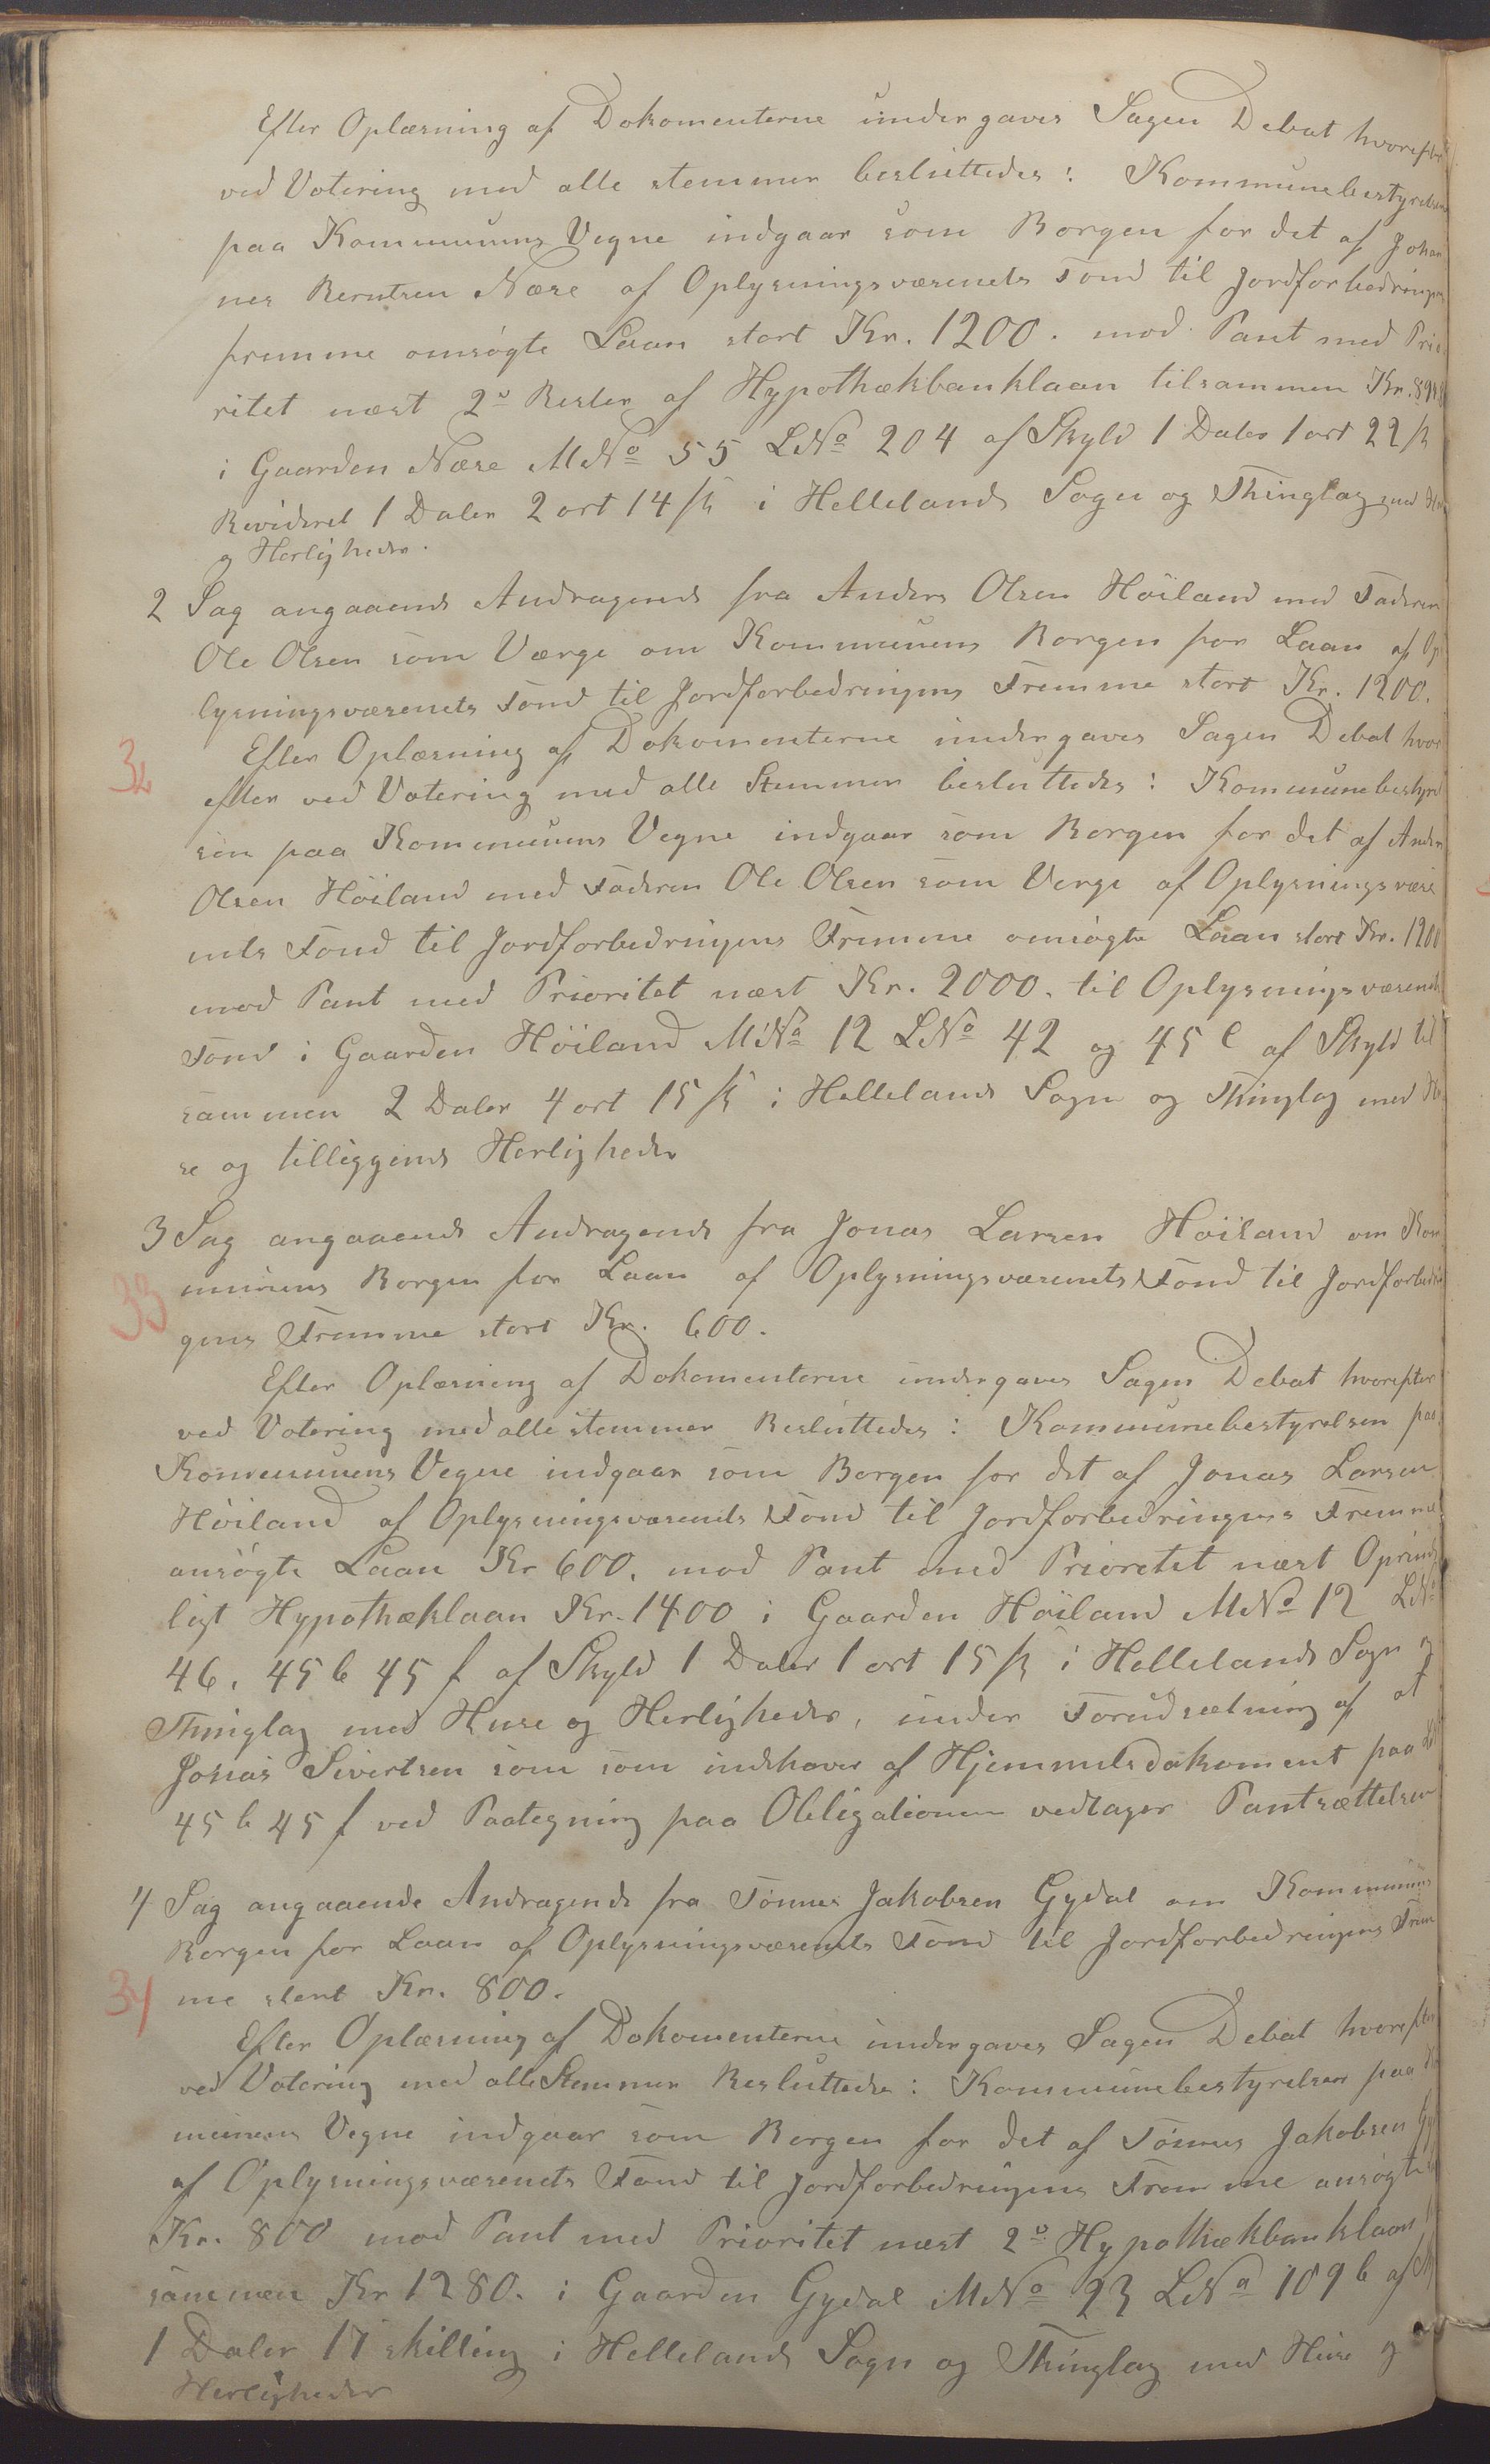 Efter Oplæsning af Dokomenterne undergaves Sagen Debat hvorefter
ved Votering med alle stemmer besluttedes: Kommunebestyrelsen
paa Kommunens Vegne indgaar som Borgen for det af Johan
nes Berntsen Næse af Oplysningsvæsenets Fond til Jordforbedringens
fremme omsøgte Laan stort Kr. 1200. mod Pant med Prio
ritet næst 2de Rester af Hypothækbanklaan tilsammen Kr.
i Gaarden Næse MNo 55 LNo 204 af Skyld 1 Daler 1 ort 22 ſk
Revideret 1 Daler 2 ort 14 ſk i Hellelands Sogn og Thinglag med
og Herligheder.
2 Sag angaaende Andragende fra Anders Olsen Høiland med Faderen
Ole Olsen som Værge om Kommunens Borgen for Laan af Op
lysningsvæsenets Fond til Jordforbedringens Fremme stort Kr. 1200.
32
Efter Oplæsning af Dokomenterne undergaves Sagen Debat hvor
efter ved Votering med alle Stemmer besluttedes: Kommunebestyrel
sen paa Kommunens Vegne indgaar som Borgen for det af Anders
Olsen Høiland med Faderen Ole Olsen som Verge af Oplysningsvæse
nets Fond til Jordforbedringens Fremme omsøgte Laan stort Kr. 1200
mod Pant med Prioritet næst Kr. 2000. til Oplysningsvæsenets
Fond i Gaarden Høiland MNo 12 LNo 42 og 45 e af Skyld til
sammen 2 Daler 4 ort 15 ſk i Hellelands Sogn og Thinglag med Hu
se og tilliggende Herligheder
3 Sag angaaende Andragende fra Jonas Larsen Høiland om Kom
munens Borgen for Laan af Oplysningsvæsenets Fond til Jordforbedrin
33
gens Fremme stort Kr. 600.
Efter Oplæsning af Dokomenterne undergaves Sagen Debat hvorefter
ved Votering med alle stemmer Besluttedes: Kommunebestyrelsen paa
Kommunens Vegne indgaar som Borgen for det af Jonas Larsen
Høiland af Oplysningsvæsenets Fond til Jordforbedringens Fremme
ansøgte Laan Kr 600. mod Pant med Prioretet næst Oprinde
ligt Hypothæklaan Kr. 1400 i Gaarden Høiland MNo 12 LNo
46, 45 b 45 f af Skyld 1 Daler 1 ort 15 ſk i Hellelands Sogn og
Thinglag med Huse og Herligheder, under Forudsætning af at
Josias Sivertsen som som indehaver af Hjemmelsdokoment paa LNo
45 b 45 f ved Paategning paa Obligationen vedtager Pantsættelsen
4 Sag angaaende Andragende fra Tønnes Jakobsen Gydal om Kommunens
Borgen for Laan af Oplysningsvæsenets Fond til Jordforbedringens Frem
34
me stort Kr. 800.
Efter Oplæsning af Dokomenterne undergaves Sagen Debat hvorefter
ved Votering med alle Stemmer Besluttedes: Kommunebestyrelsen paa
munens Vegne indgaar som Borgen for det af Tønnes Jakobsen
af Oplysningsvæsenets Fond til Jordforbedringens Fremme ansøgte
Kr. 800 mod Pant med Prioritet næst 2de Hypothækbanklaan
sammen Kr 1280. i Gaarden Gydal MNo 23 LNo 109 b af
1 Daler 17 skilling i Hellelands Sogn og Thinglag med Huse og
Herligheder